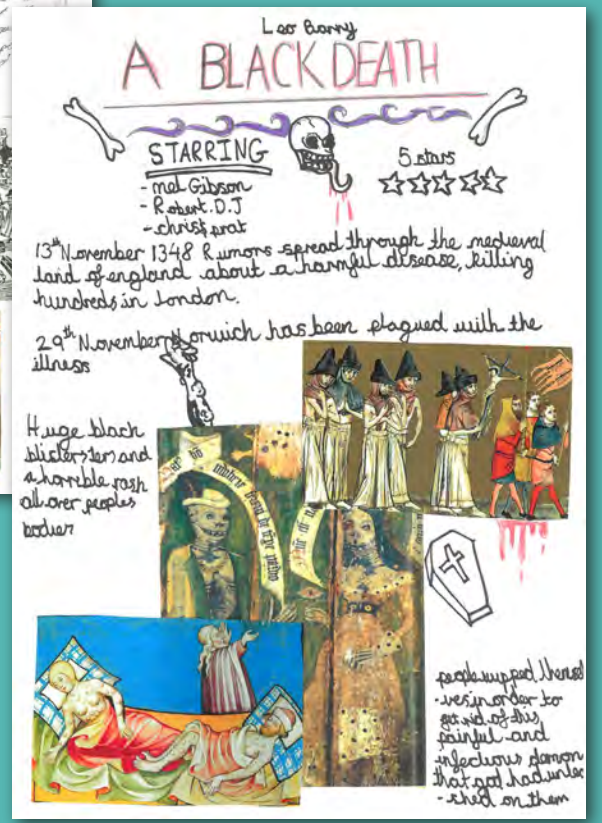 Leo Barry
A BLACK DEATH
STARRING
- mel Gibson
- Robert. D.J
- christ prat
5 stars
13th November 1348 Rumors spread through the medieval
land of england about a harmful disease, killing
hundreds in London.
29th November Norwich has been plagued with the
illness
Huge black
blisters and
a horrible rash
all over peoples
bodies
people wipped themsel
- ves in order to
get rid of this
painful and
infectious demon
that god had unlea
- shed on them